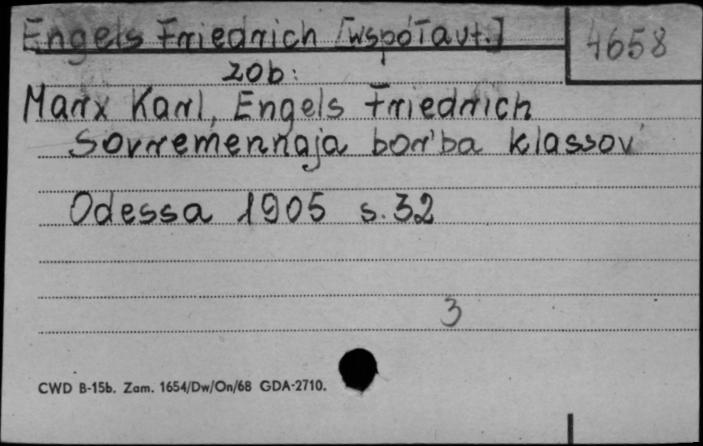 Engels Friedrich [współaut.]
4658
zob:
Marx Karl, Engels Friedrich
Sovremennaja bor'ba klassov
Odessa 1905 s. 32
3
CWD B-15b. Zam. 1654/Dw/On/68 GDA-2710.